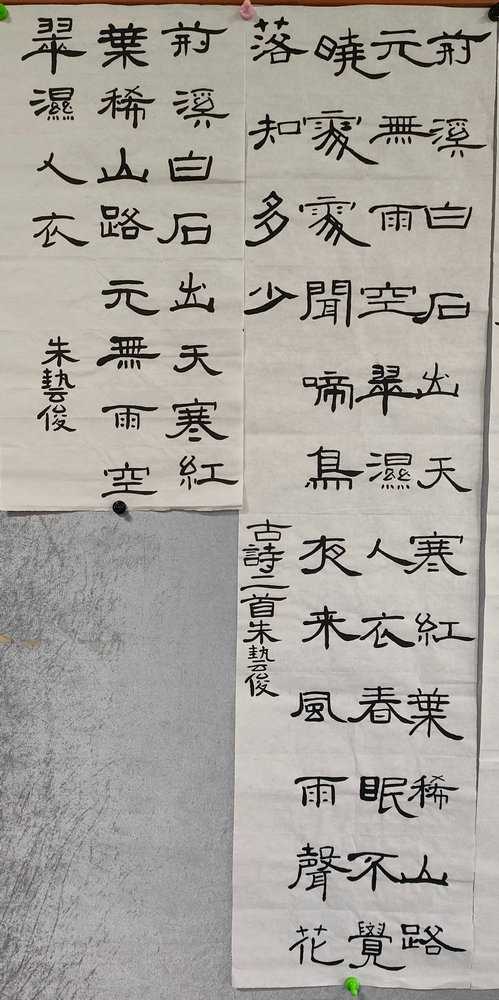 荊溪白石出天寒紅葉稀山路
元無雨空翠濕人衣春眠不覺
曉處處聞啼鳥夜来風雨聲花
落知多少
古詩二首朱藝俊
荊溪白石出天寒紅
葉稀山路元無雨空
翠濕人衣
朱藝俊